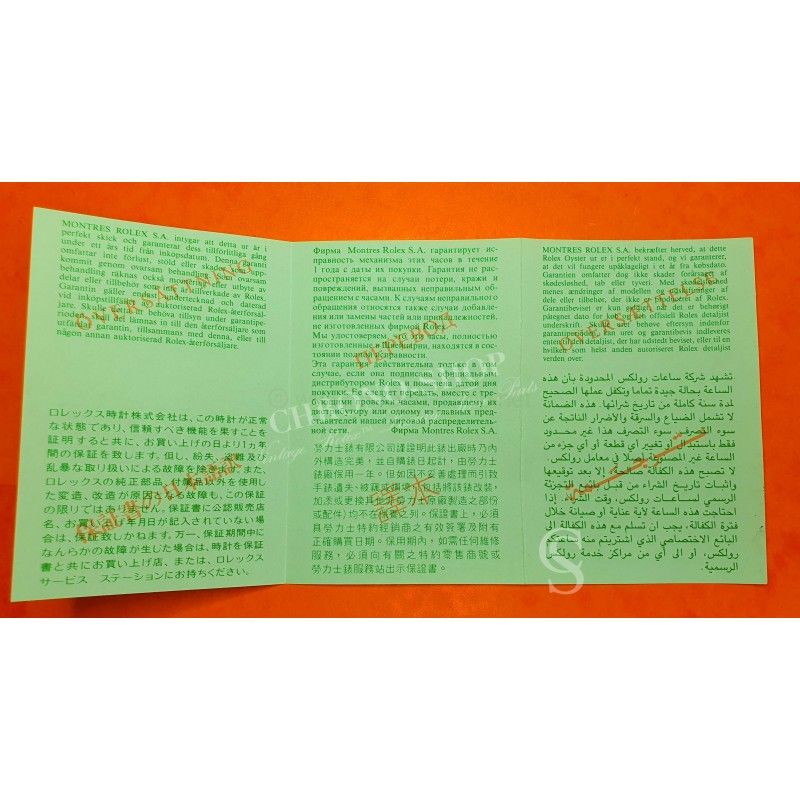 MONTRES ROLEX S.A. intygar att detta ur är i
perfekt skick och garanterat dess tillförlitliga gång
under ett års tid från inköpsdatum. Denna garanti
omfattar inte förlust, stöld eller skador som upp-
kommit genom ovarsam behandling. Med ovarsam
behandling räknas även om modellen ändras eller
delar eller tillbehör som ej är tillverkade av Rolex.
Garantin gäller endast undertecknad och daterad
vid inköpstillfället av auktoriserad Rolex-återförsäl-
jare. Skulle uret behöva tillsyn under garantipe-
rioden, skall det lämnas in till den återförsäljare som
utfärdat garantin, tillsammans med denna, eller till
någon annan auktoriserad Rolex-återförsäljare.
ÖVERSÄTTNING
ロレックス時計株式会社は、この時計が正常
な状態であり、信頼すべき機能を果すことを
証明すると共に、お買い上げの日より1ヵ年
間の保証を致します。但し、紛失、盗難及び
乱暴な取り扱いによる故障を除きます。また、
ロレックスの純正部品
以外を使用し
た変造、改造が原因
故障も、この保証
の限りではありません。保証書に公認販売店
名、お買い上げ年月日が記入されていない場
合は、保証致しかねます。万一、保証期間中に
なんらかの故障が生じた場合は、時計を保証
書と共にお買い上げ店、または、ロレックス
サービス ステーションにお持ちください。
保証書の日本語訳
Фирма Montres Rolex S.A. гарантирует ис-
правность механизма этих часов в течение
1 года с даты их покупки. Гарантия не рас-
пространяется на случаи потери, кражи и
повреждений, вызванных неправильным об-
ращением с часами. К случаям неправильного
обращения относятся также случаи добавле-
ния или замены частей или принадлежностей,
не изготовленных фирмой Rolex.
Мы удостоверяем, что эти часы, полностью
изготовленные в Швейцарии, находятся в сос-
тоянии полной исправности.
Эта гарантия действительна только в том
случае, если она подписана официальным
дистрибутором Rolex и помечена датой дня
покупки. Ее следует передать, вместе с тре-
бующими проверки часами, продавшему их
дистрибутору или одному из главных пред-
ставителей нашей мировой распределитель-
ной сети. Фирма Montres Rolex S.A.
ПЕРЕВОД
勞力士錶有限公司謹證明此錶出廠時乃內
外構造完美，並自購錶日起計，由勞力士
錶廠保用一年。但如因不妥善處理而引致
手錶遺失、被竊或損壞，包括將該錶改裝，
加添或更換其他非勞力士原廠製造之部份
或配件）均不在保證之列。保證書上，必須
具勞力士特約經銷商之有效簽署及附有
正確購買日期。保用期內，如需任何維修
服務，必須向有關之特約零售商號或
勞力士錶服務站出示保證書。
譯本
MONTRES ROLEX S.A. bekræfter herved, at dette
Rolex Oyster ur er i perfekt stand, og vi garanterer,
at det vil fungere upåklageligt i et år fra købsdato.
Garantien omfatter dog ikke skader forårsaget af
skødesløshed, tab eller tyveri. Med skødesløshed
menes ændringer af modellen og
af
dele eller tilbehør, der ikke er produceret af Rolex.
Garantibeviset er kun gyldigt, når det er behørigt
påtegnet dato for købet og den officiell Rolex detaljist
underskrift. Skulle uret behøve eftersyn indenfor
garantiperioden, kan uret og garantibevis indleveres
enten til den detaljist, der har udstedt beviset, eller til en
hvilken som helst anden autoriseret Rolex detaljist
verden over.
OVERSÆTTELSE
تشهد شركة ساعات رولكس المحدودة بأن هذه
الساعة بحالة جيدة تماما وتكفل عملها الصحيح
لمدة سنة كاملة من تاريخ شرائها. هذه الضمانة
لا تشمل الضياع والسرقة والأضرار الناتجة عن
سوء التصرف. سوء التصرف هذا غير محدود
فقط باستبدال أو تغيير أي قطعة أو أي جزء من
الساعة غير المصنوعة أصلا في معامل رولكس.
لا تصبح هذه الكفالة صالحة إلا بعد توقيعها
واثبات تاريخ الشراء من قبل بائع التجزئة
الرسمي لساعات رولكس، وقت الشراء. إذا
احتاجت هذه الساعة لأية عناية أو صيانة خلال
فترة الكفالة، يجب ان تسلم مع هذه الكفالة الى
البائع الاختصاصي الذي اشتريتم منه ساعتكم
رولكس، أو الى أي من مراكز خدمة رولكس
الرسمية.